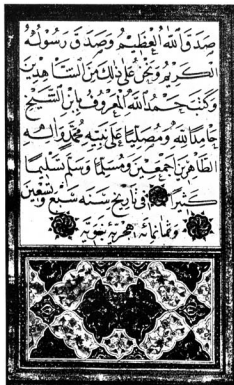 صدق الله العظيم وصدق رسوله
الكريم ونحن على ذلك من الشاهدين
وكتب حمد الله المعروف بابن الشيخ
حامدا لله ومصليا على نبيه محمد وآله
الطاهرين اجمعين ومسلما وسلم تسليما
كثيرا في تاريخ سنة سبع وتسعين
وثمانمائة هجرية نبوية